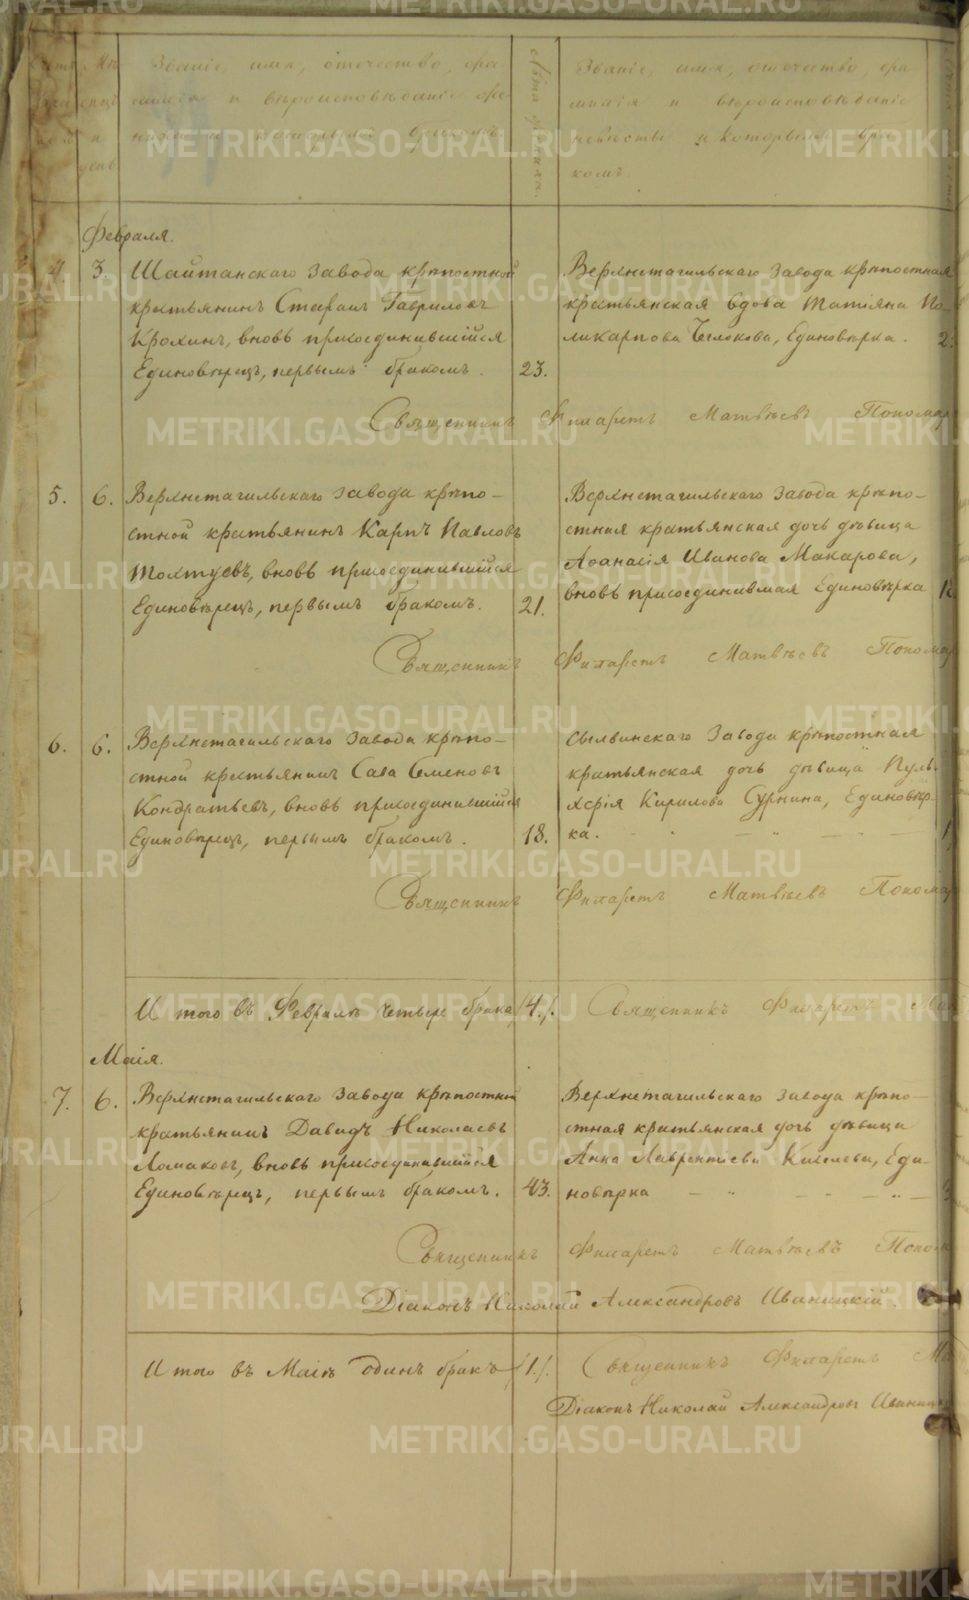 Званіе, имя, отечество, фа-
милія и вѣроисповѣданіе же-
ниха и которымъ бракомъ.
Званіе, имя, отечество, фа-
милія и вѣроисповѣданіе
невѣсты и которымъ бра-
комъ.
Февраля.
4. 3. Шайтанскаго завода крѣпостной
крестьянинъ Стефанъ Гавриловъ
Крохинъ, вновь присоединившійся
Единовѣрецъ, первымъ бракомъ. 23.
Верхнетагильскаго завода крѣпостная
крестьянская вдова Татіяна По-
ликарпова Единовѣрка.
Священникъ Филаретъ Матвѣевъ Пономар
5. 6. Верхнетагильскаго завода крѣпо-
стной крестьянинъ Карпъ Павловъ
Толтуевъ, вновь присоединившійся
Единовѣрецъ, первымъ бракомъ. 21.
Верхнетагильскаго завода крѣпо-
стная крестьянская дочь дѣвица
Аѳанасія Иванова Макарова,
вновь присоединившая Единовѣрка
Священникъ Филаретъ Матвѣевъ Пономар
6. 6. Верхнетагильскаго завода крѣпо-
стной крестьянинъ Сава Семеновъ
Кондратьевъ, вновь присоединившійся
Единовѣрецъ, первымъ бракомъ. 18.
Сылвинскаго завода крѣпостная
крестьянская дочь дѣвица Пуль-
херія Кирилова Сурнина, Единовѣр-
ка.
Священникъ Филаретъ Матвѣевъ Пономар
И того въ Февралѣ четыре брака /4./.
Священникъ Филаретъ
Маія.
7. 6. Верхнетагильскаго завода крѣпостной
крестьянинъ Давидъ Николаевъ
Ломаковъ, вновь присоединившійся
Единовѣрецъ, первымъ бракомъ. 43.
Верхнетагильскаго завода крѣпо-
стная крестьянская дочь дѣвица
Анна Лаврентіева Киселева, Еди-
новѣрка
Священникъ Филаретъ Матвѣевъ Поном
Діаконъ Николай Александровъ Иваницкій.
И того въ Маіѣ одинъ бракъ /1./.
Священникъ Филаретъ Ма
Діаконъ Николай Александровъ Иваниц
METRIKI.GASO-URAL.RU